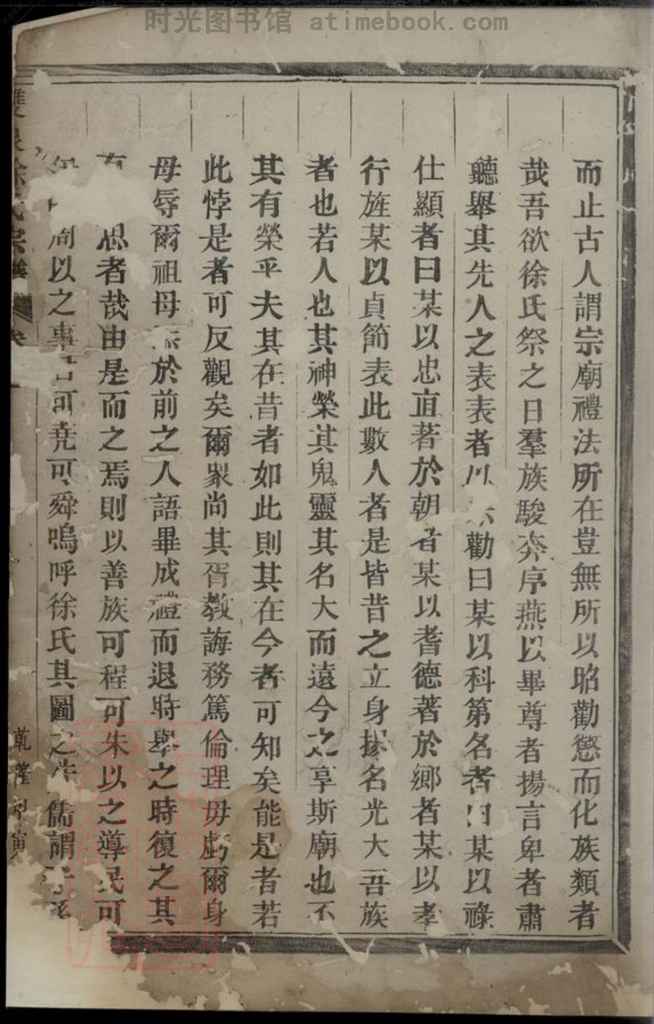 时光图书馆 atimebook.com
而止古人謂宗廟禮法所在豈無所以昭勸懲而化族類者
哉吾欲徐氏祭之日羣族駿奔序燕以畢尊者揚言卑者肅
聽舉其先人之表表者以勸曰某以科第名者曰某以祿
仕顯者曰某以忠直著於朝者某以耆德著於鄉者某以孝
行旌某以貞節表此數人者是皆昔之立身揚名光大吾族
者也若人也其神榮其鬼靈其名大而遠今之享斯廟也不
其有榮乎夫其在昔者如此則其在今者可知矣能是者若
此悖是者可反觀矣爾眾尚其胥教誨務篤倫理毋虧爾身
毋辱爾祖母於前之人語畢成禮而退時舉之時復之其
有思者哉由是而之焉則以善族可程可朱以之導民可
以之事君可堯可舜嗚呼徐氏其圖之儒謂
雙泉徐氏宗譜
乾隆 寅